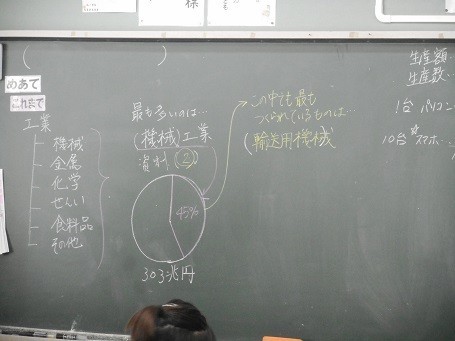 様
(　　　　　)
めあて
これまで
工業
機械
金属
化学
せんい
食料品
その他
最も多いのは…
(機械)工業
資料(2)
45%
303兆円
この中でも最も
つくられているものは…
(輸送用機械
生産額…
生産数…
1台 パソコン
10台 スマホ…